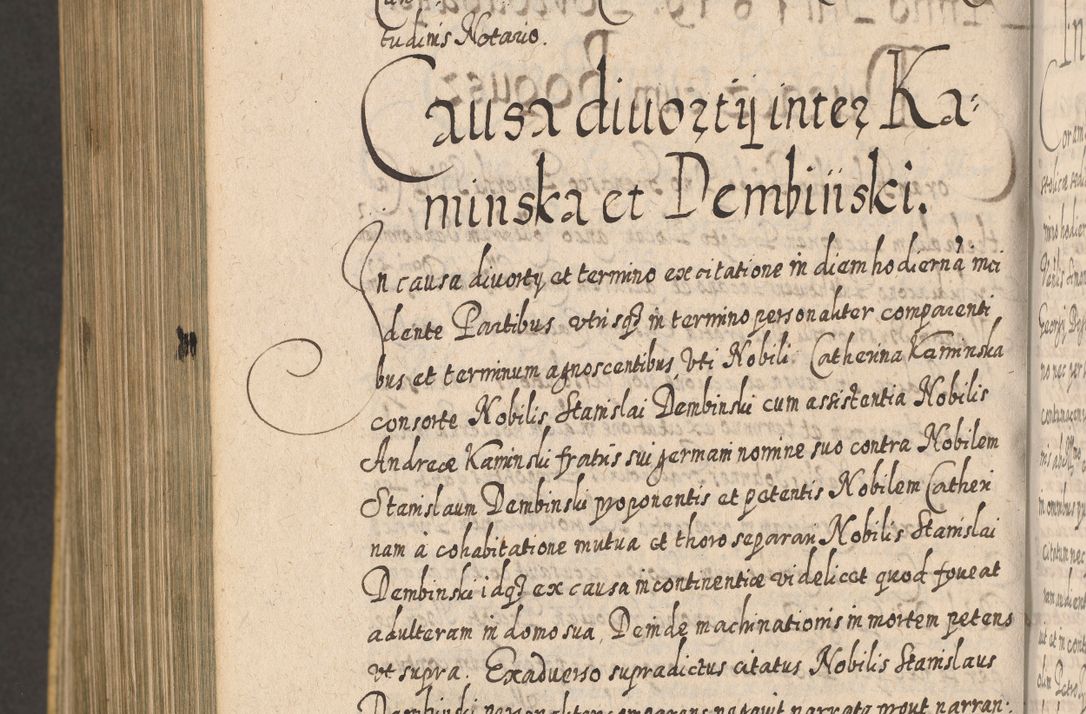 tudinis Notario.
Causa diuortij inter Ka-
minska et Dembinski.
In causa diuortij et termino ex citatione in diem hodierna inci
dente Partibus utrisq3 in termino personaliter comparenti
bus et terminum agnoscentibus, Vti Nobili Catherina Kaminska
consorte Nobilis Stanislai Dembinski cum assistentia Nobilis
Andreæ Kaminski fratris sui germani nomine suo contra Nobilem
Stanislaum Dembinski proponentis et petentis Nobilem Catheri
nam à cohabitatione mutua et thoro separari Nobilis Stanislai
Dembinski idq3 ex causa incontinentiæ videlicet quod foueat
adulteram in domo sua, Deinde machinationis in mortem petens
ut supra. Exaduerso supradictus citatus Nobilis Stanislaus
Dembinski personaliter comparens negauit narrata prout narran-